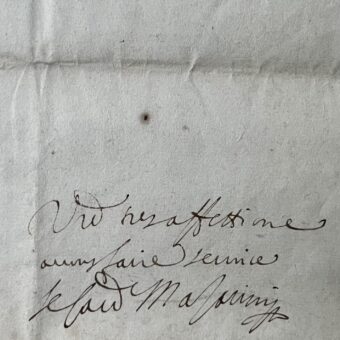 Vre tres affettione
a vous faire service
le Card Mazarini